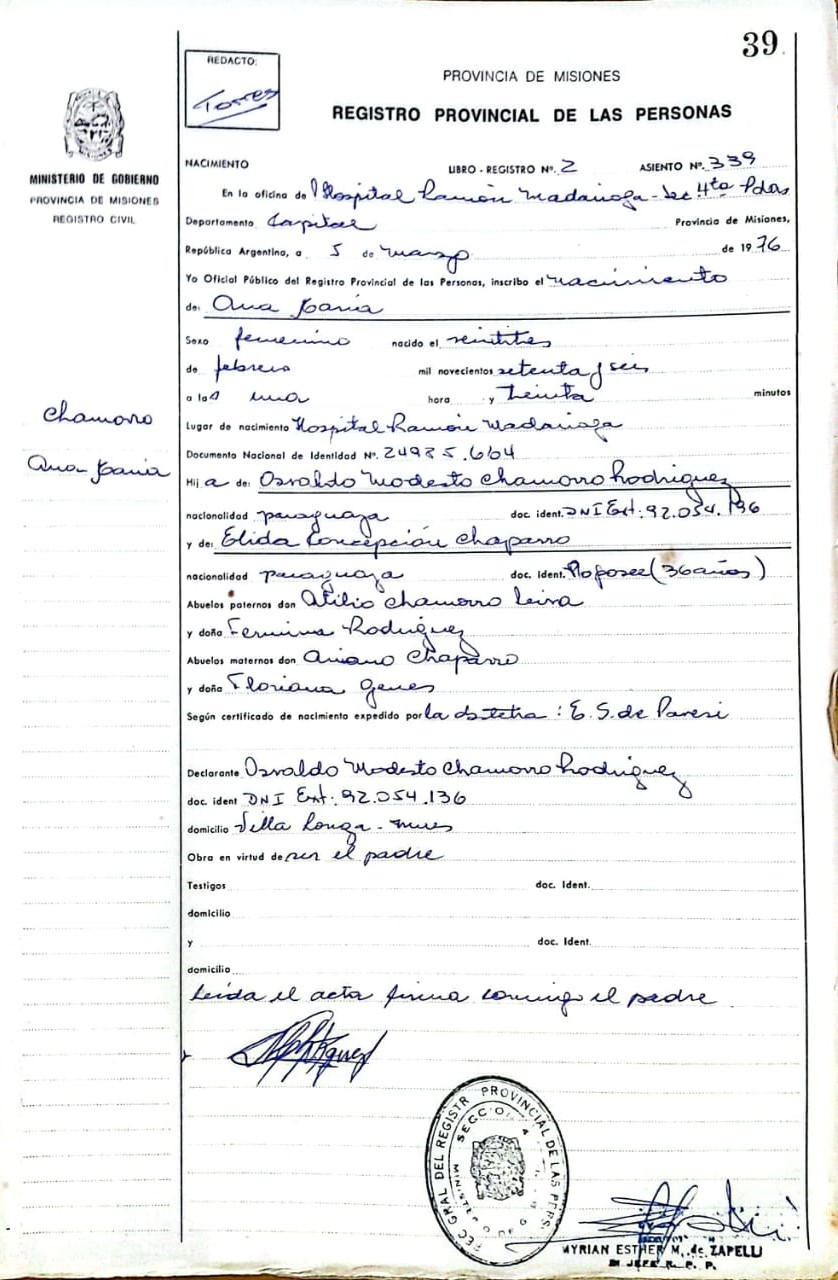 39
REDACTO:
Torres
PROVINCIA DE MISIONES
REGISTRO PROVINCIAL DE LAS PERSONAS
MINISTERIO DE GOBIERNO
PROVINCIA DE MISIONES
REGISTRO CIVIL
NACIMIENTO LIBRO - REGISTRO Nº. 2 ASIENTO Nº. 339
En la oficina de Hospital Ramón Madariaga - Sec 4ta Pdas
Departamento Capital Provincia de Misiones,
República Argentina, a 5 de marzo de 1976
Yo Oficial Público del Registro Provincial de las Personas, inscribo el nacimiento
de: Ana María
Sexo femenino nacido el veintitres
de febrero mil novecientos setenta y seis
a las una hora y treinta minutos
Chamorro
Ana María
Lugar de nacimiento Hospital Ramón Madariaga
Documento Nacional de Identidad Nº. 24985.664
Hij a de: Osvaldo Modesto Chamorro Rodriguez
nacionalidad paraguaya doc. ident. DNI Ext: 92.054.136
y de: Elida Concepción Chaparro
nacionalidad paraguaya doc. Ident. No posee (36 años)
Abuelos paternos don Atilio Chamorro Leiva
y doña Fermina Rodriguez
Abuelos maternos don Ariano Chaparro
y doña Floriana Genes
Según certificado de nacimiento expedido por la obstetra : E. S. de Paresi
Declarante Osvaldo Modesto Chamorro Rodriguez
doc. ident DNI Ext: 92.054.136
domicilio Villa Longa -
Obra en virtud de ser el padre
Testigos doc. Ident.
domicilio
y doc. Ident.
domicilio
Leida el acta firma conmigo el padre
REGISTR PROVINCIAL DE LAS PERS
MYRIAN ESTHER M. de ZAPELLI
JEFE R. P. P.